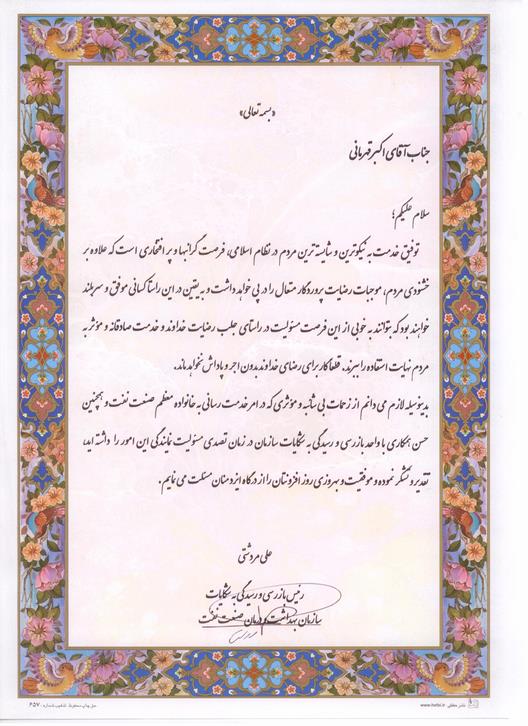 «بسمه تعالی»
جناب آقای اکبر قهرمانی
سلام علیکم؛
توفیق خدمت به نیکوترین و شایسته ترین مردم در نظام اسلامی، فرصت گرانبها و پر افتخاری است که علاوه بر
خشنودی مردم، موجبات رضایت پروردگار متعال را در پی خواهد داشت و به یقین در این راستا کسانی موفق و سربلند
خواهند بود که بتوانند به خوبی از این فرصت مسئولیت در راستای جلب رضایت خداوند و خدمت صادقانه و مؤثر به
مردم نهایت استفاده را ببرند، قطعا کار برای رضای خداوند بدون اجر و پاداش نخواهد ماند.
بدینوسیله لازم می دانم از زحمات بی شائبه و مؤثری که در امر خدمت رسانی به خانواده معظم صنعت نفت و همچنین
حسن همکاری با واحد بازرسی و رسیدگی به شکایات سازمان در زمان تصدی مسئولیت نمایندگی این امور را داشته اید،
تقدیر و تشکر نموده و موفقیت و بهروزی روز افزونتان را از درگاه ایزد منان مسئلت می نمایم.
علی مردشتی
رئیس بازرسی و رسیدگی به شکایات
سازمان بهداشت و درمان صنعت نفت
نشر حافظی www.hefzi.ir
حق چاپ محفوظ شماره: ۶۵۷